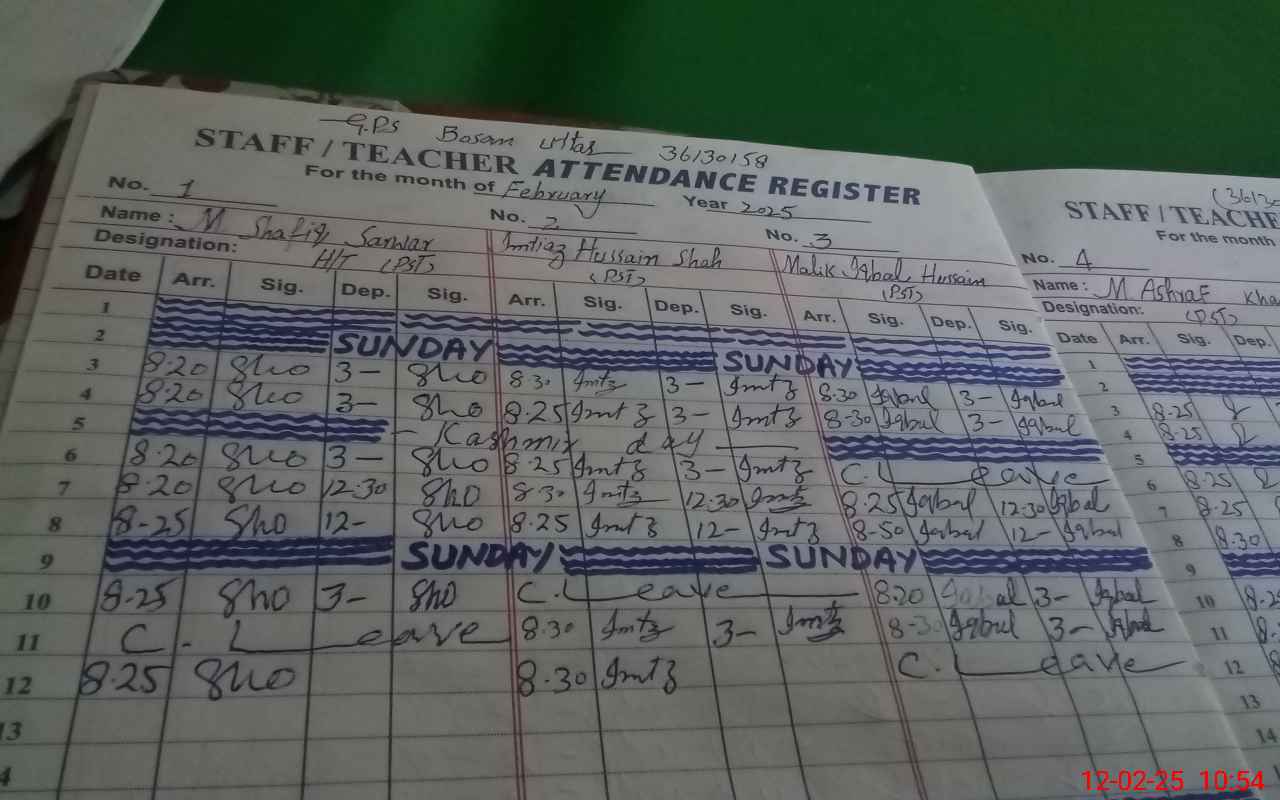 G.P.S Bosan Uttar 36130158
STAFF / TEACHER ATTENDANCE REGISTER
For the month of February Year 2025
No. 1 No. 2 No. 3
Name: M Shafiq Sarwar Imtiaz Hussain Shah Malik Iqbal Hussain
Designation: H/T (PST) (PST) (PST)
Date Arr. Sig. Dep. Sig. Arr. Sig. Dep. Sig. Arr. Sig. Dep. Sig.
1
2 SUNDAY SUNDAY
3 8.20 3- 8.30 Imtz 3- Imtz 8.30 Iqbal 3- Iqbal
4 8.20 3- 8.25 Imtz 3- Imtz 8-30 Iqbal 3- Iqbal
5 - Kashmir day
6 8.20 3- 8.25 Imtz 3- Imtz C. Leave
7 8.20 12.30 8.30 Imtz 12.30 Imtz 8.25 Iqbal 12.30 Iqbal
8 8-25 12- 8.25 Imtz 12- Imtz 8-50 Iqbal 12- Iqbal
9 SUNDAY SUNDAY
10 8.25 3- C. Leave 8.20 Iqbal 3- Iqbal
11 C. Leave 8.30 Imtz 3- Imtz 8-30 Iqbal 3- Iqbal
12 8.25 8.30 Imtz C. Leave
13
4
STAFF / TEACHE
For the month
No. 4
Name: M Ashraf Kha
Designation: (PST)
Date Arr. Sig. Dep.
1
2
3 8.25
4 8.25
5
6 8.25
7 8.25
8 8.30
9
10
11
12
13
14
12-02-25 10:54